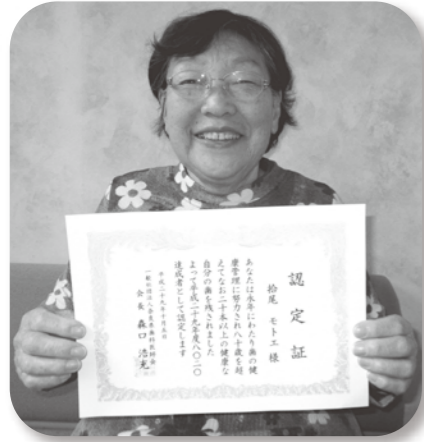 認定証
拾尾 モトエ 様
あなたは永年にわたり歯の健
康管理に努力され八十歳を超
えてなお二十本以上の健康な
自分の歯を残されました
よって平成二十九年度八〇二〇
達成者として認定します
平成二十九年十月五日
一般社団法人奈良県歯科医師会
会長 森口 浩充